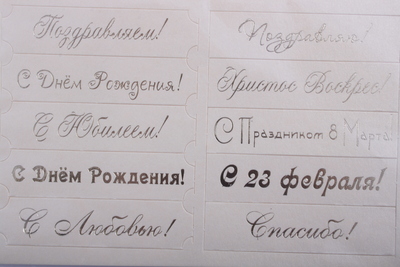 Поздравляем!
Поздравляю!
С Днём Рождения!
Христос Воскрес!
С Юбилеем!
С Праздником 8 Марта!
С Днём Рождения!
С 23 февраля!
С Любовью!
Спасибо!